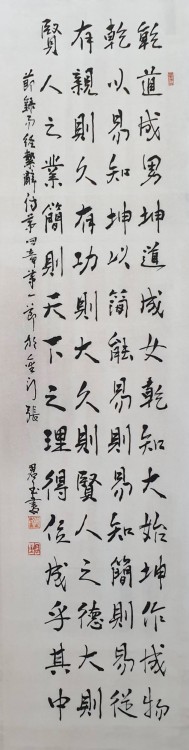 乾道成男坤道成女乾知大始坤作成物
乾以易知坤以簡能易則易知簡則易從
有親則久有功則大久則賢人之德大則
賢人之業簡則天下之理得位成乎其中
節錄易經繫辭傳第四章第一節於金門張